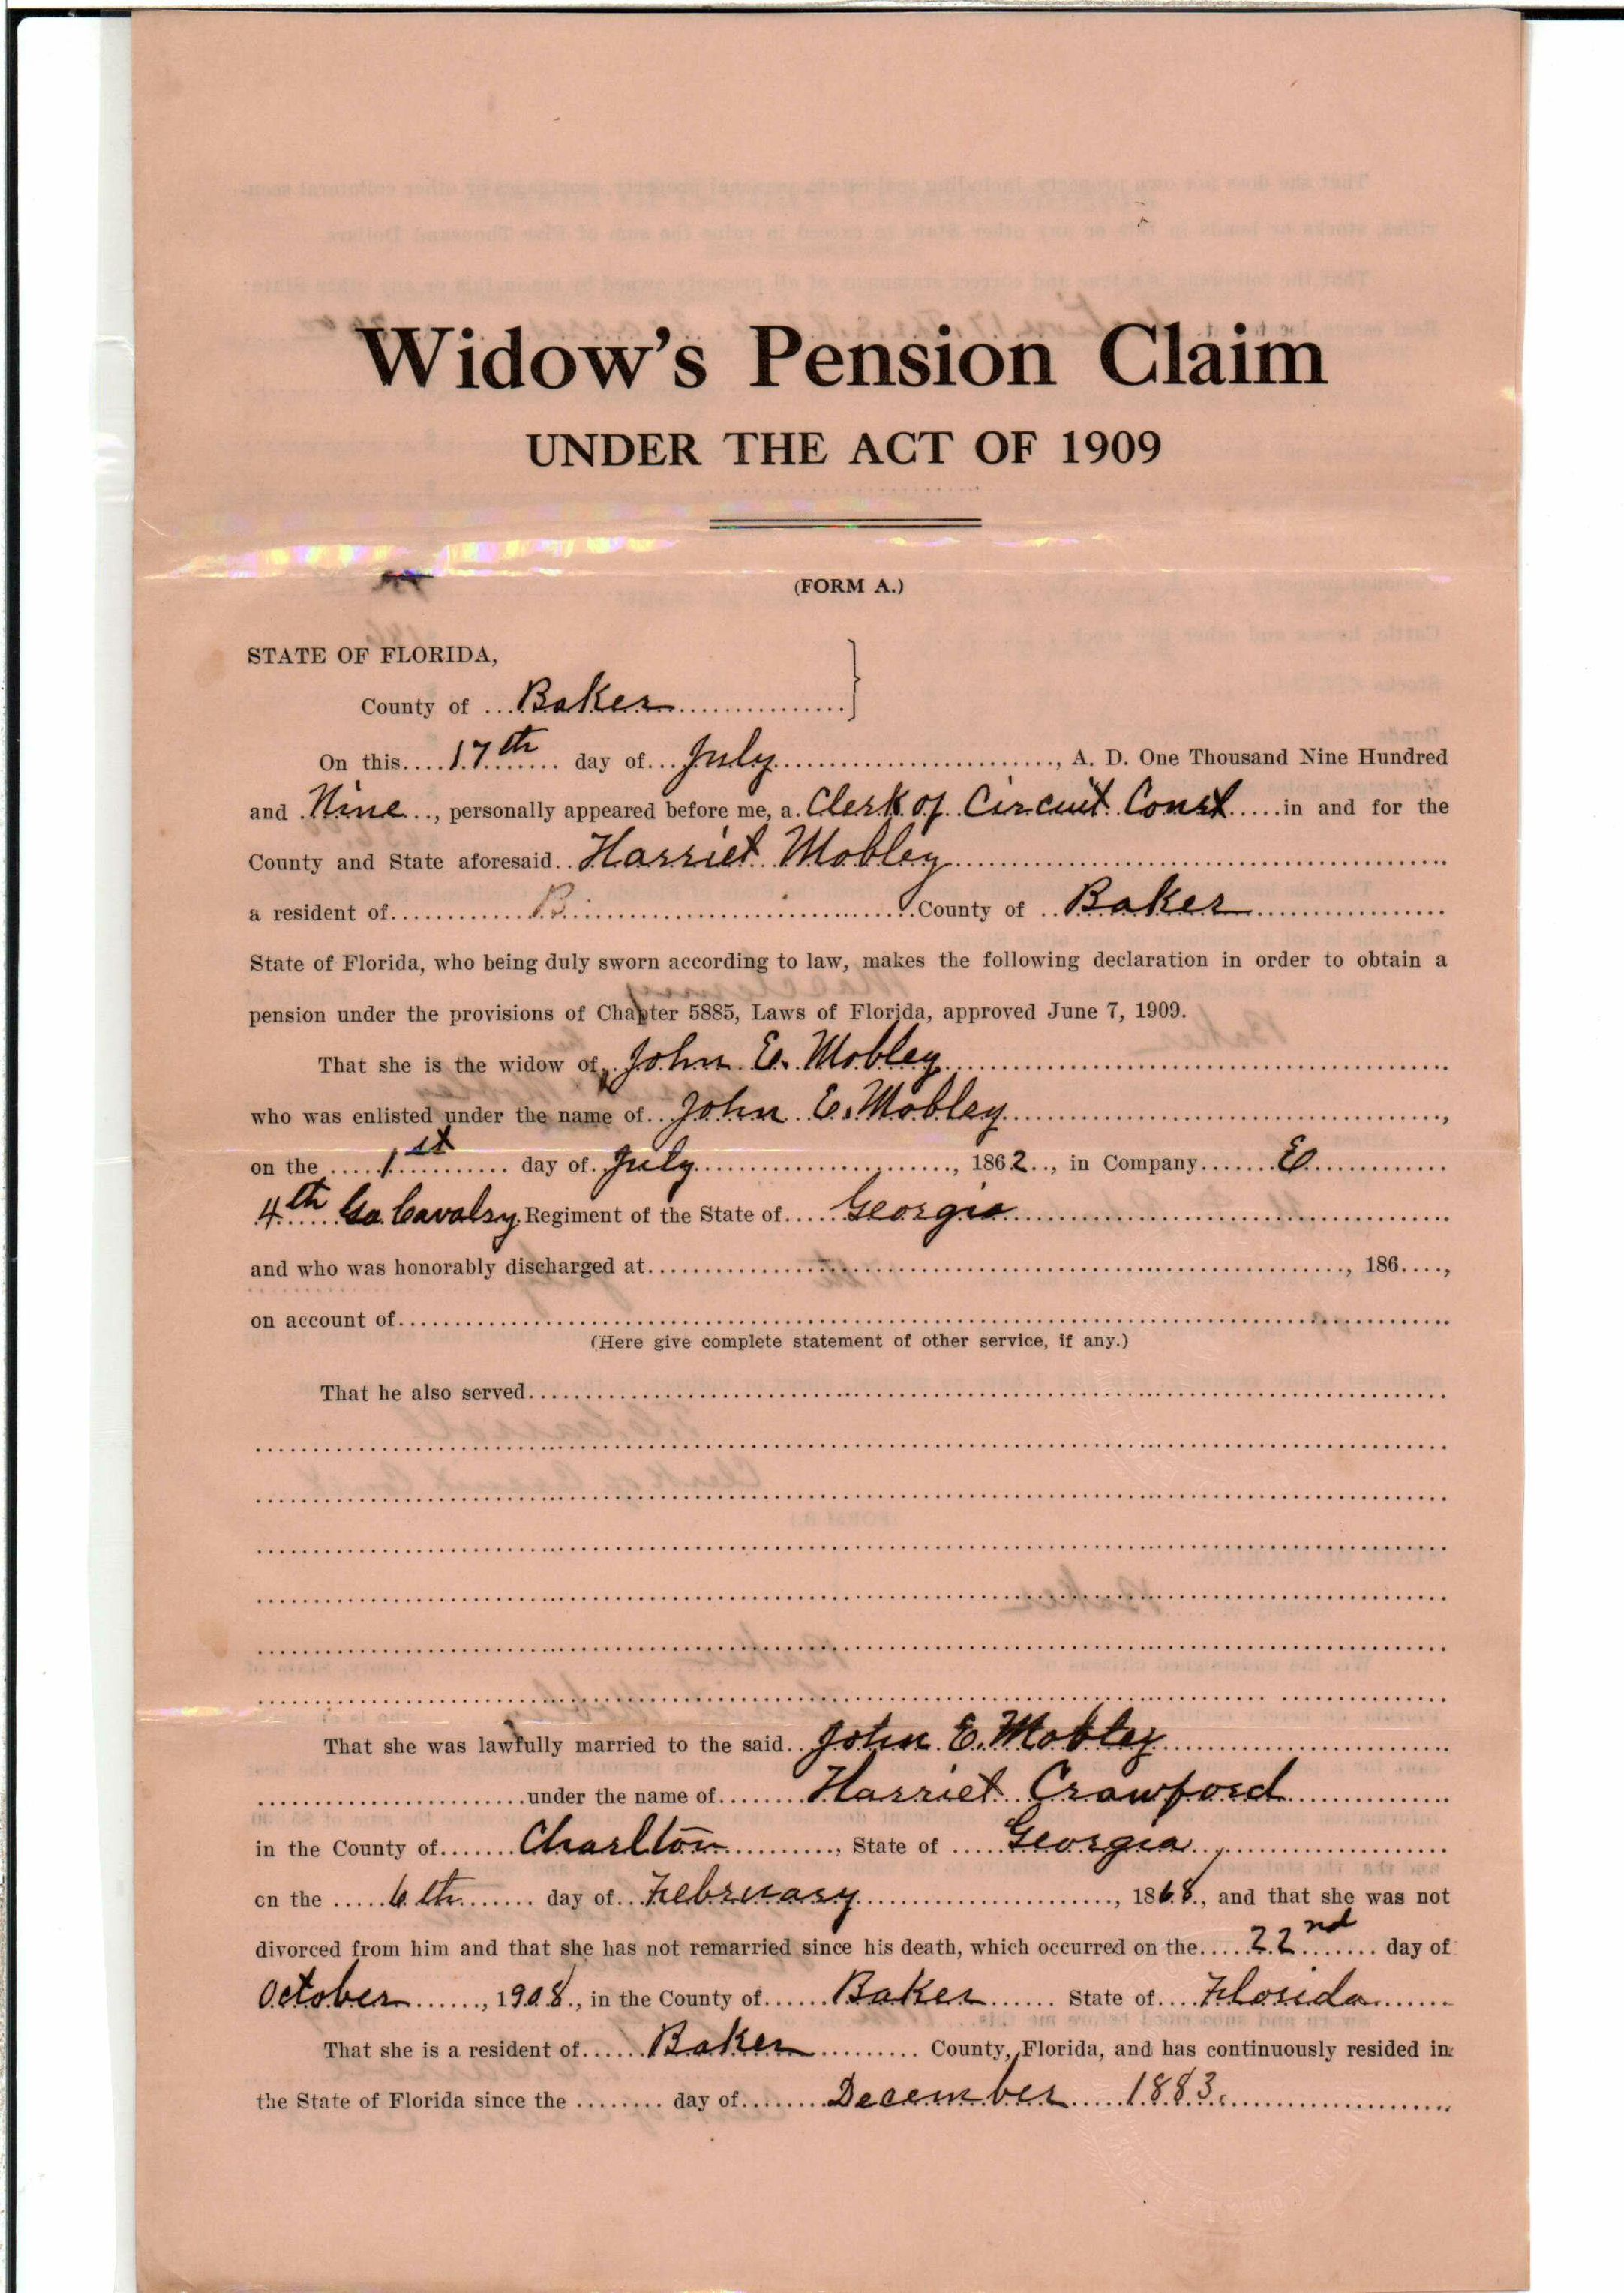 Widow's Pension Claim
UNDER THE ACT OF 1909
(FORM A.)
STATE OF FLORIDA,
County of Baker
On this 17th day of July, A. D. One Thousand Nine Hundred
and Nine, personally appeared before me, a Clerk of Circuit Court in and for the
County and State aforesaid Harriet Mobley
a resident of B County of Baker
State of Florida, who being duly sworn according to law, makes the following declaration in order to obtain a
pension under the provisions of Chapter 5885, Laws of Florida, approved June 7, 1909.
That she is the widow of John E. Mobley
who was enlisted under the name of John E. Mobley,
on the 1st day of July, 1862, in Company E
4th Ga Cavalry Regiment of the State of Georgia
and who was honorably discharged at, 186,
on account of
(Here give complete statement of other service, if any.)
That he also served
That she was lawfully married to the said John E. Mobley
under the name of Harriet Crawford
in the County of Charlton, State of Georgia,
on the 6th day of February, 1868, and that she was not
divorced from him and that she has not remarried since his death, which occurred on the 22nd day of
October, 1908, in the County of Baker State of Florida
That she is a resident of Baker County, Florida, and has continuously resided in
the State of Florida since the day of December 1883.